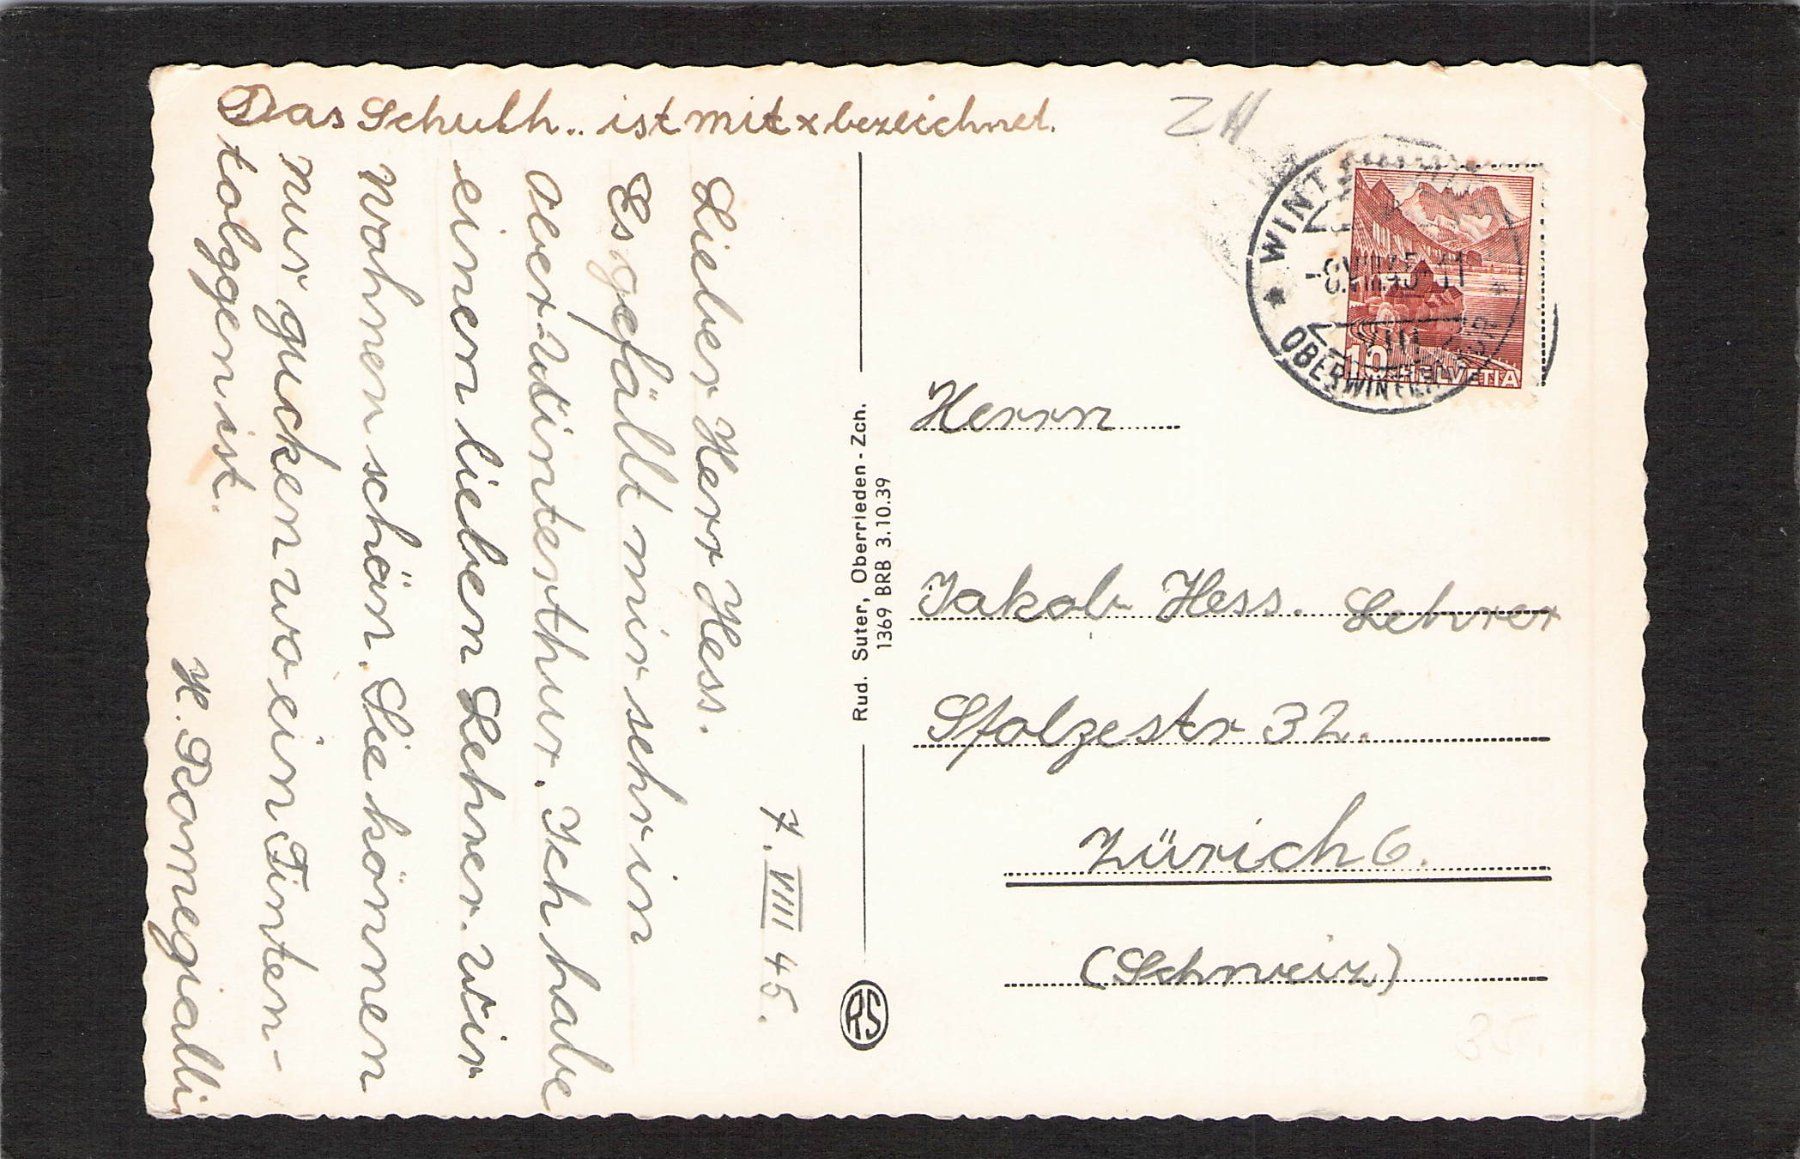 Das Schulh.. ist mit x bezeichnet.
7. VIII 45.
Lieber Herr Hess.
Es gefällt mir sehr in
Ober-Winterthur. Ich habe
einen lieben Lehrer. Wir
Wohnen schön. Sie können
nur gucken wo ein Tinten-
tolggen ist.
H. Romegialli
Rud. Suter, Oberrieden - Zch.
1369 BRB 3.10.39
RS
ZH
-8.VIII.45-11
10 HELVETIA
Herrn
Jakob Hess. Lehrer
Scholzestr 32.
Zürich 6.
(Schweiz)
35.